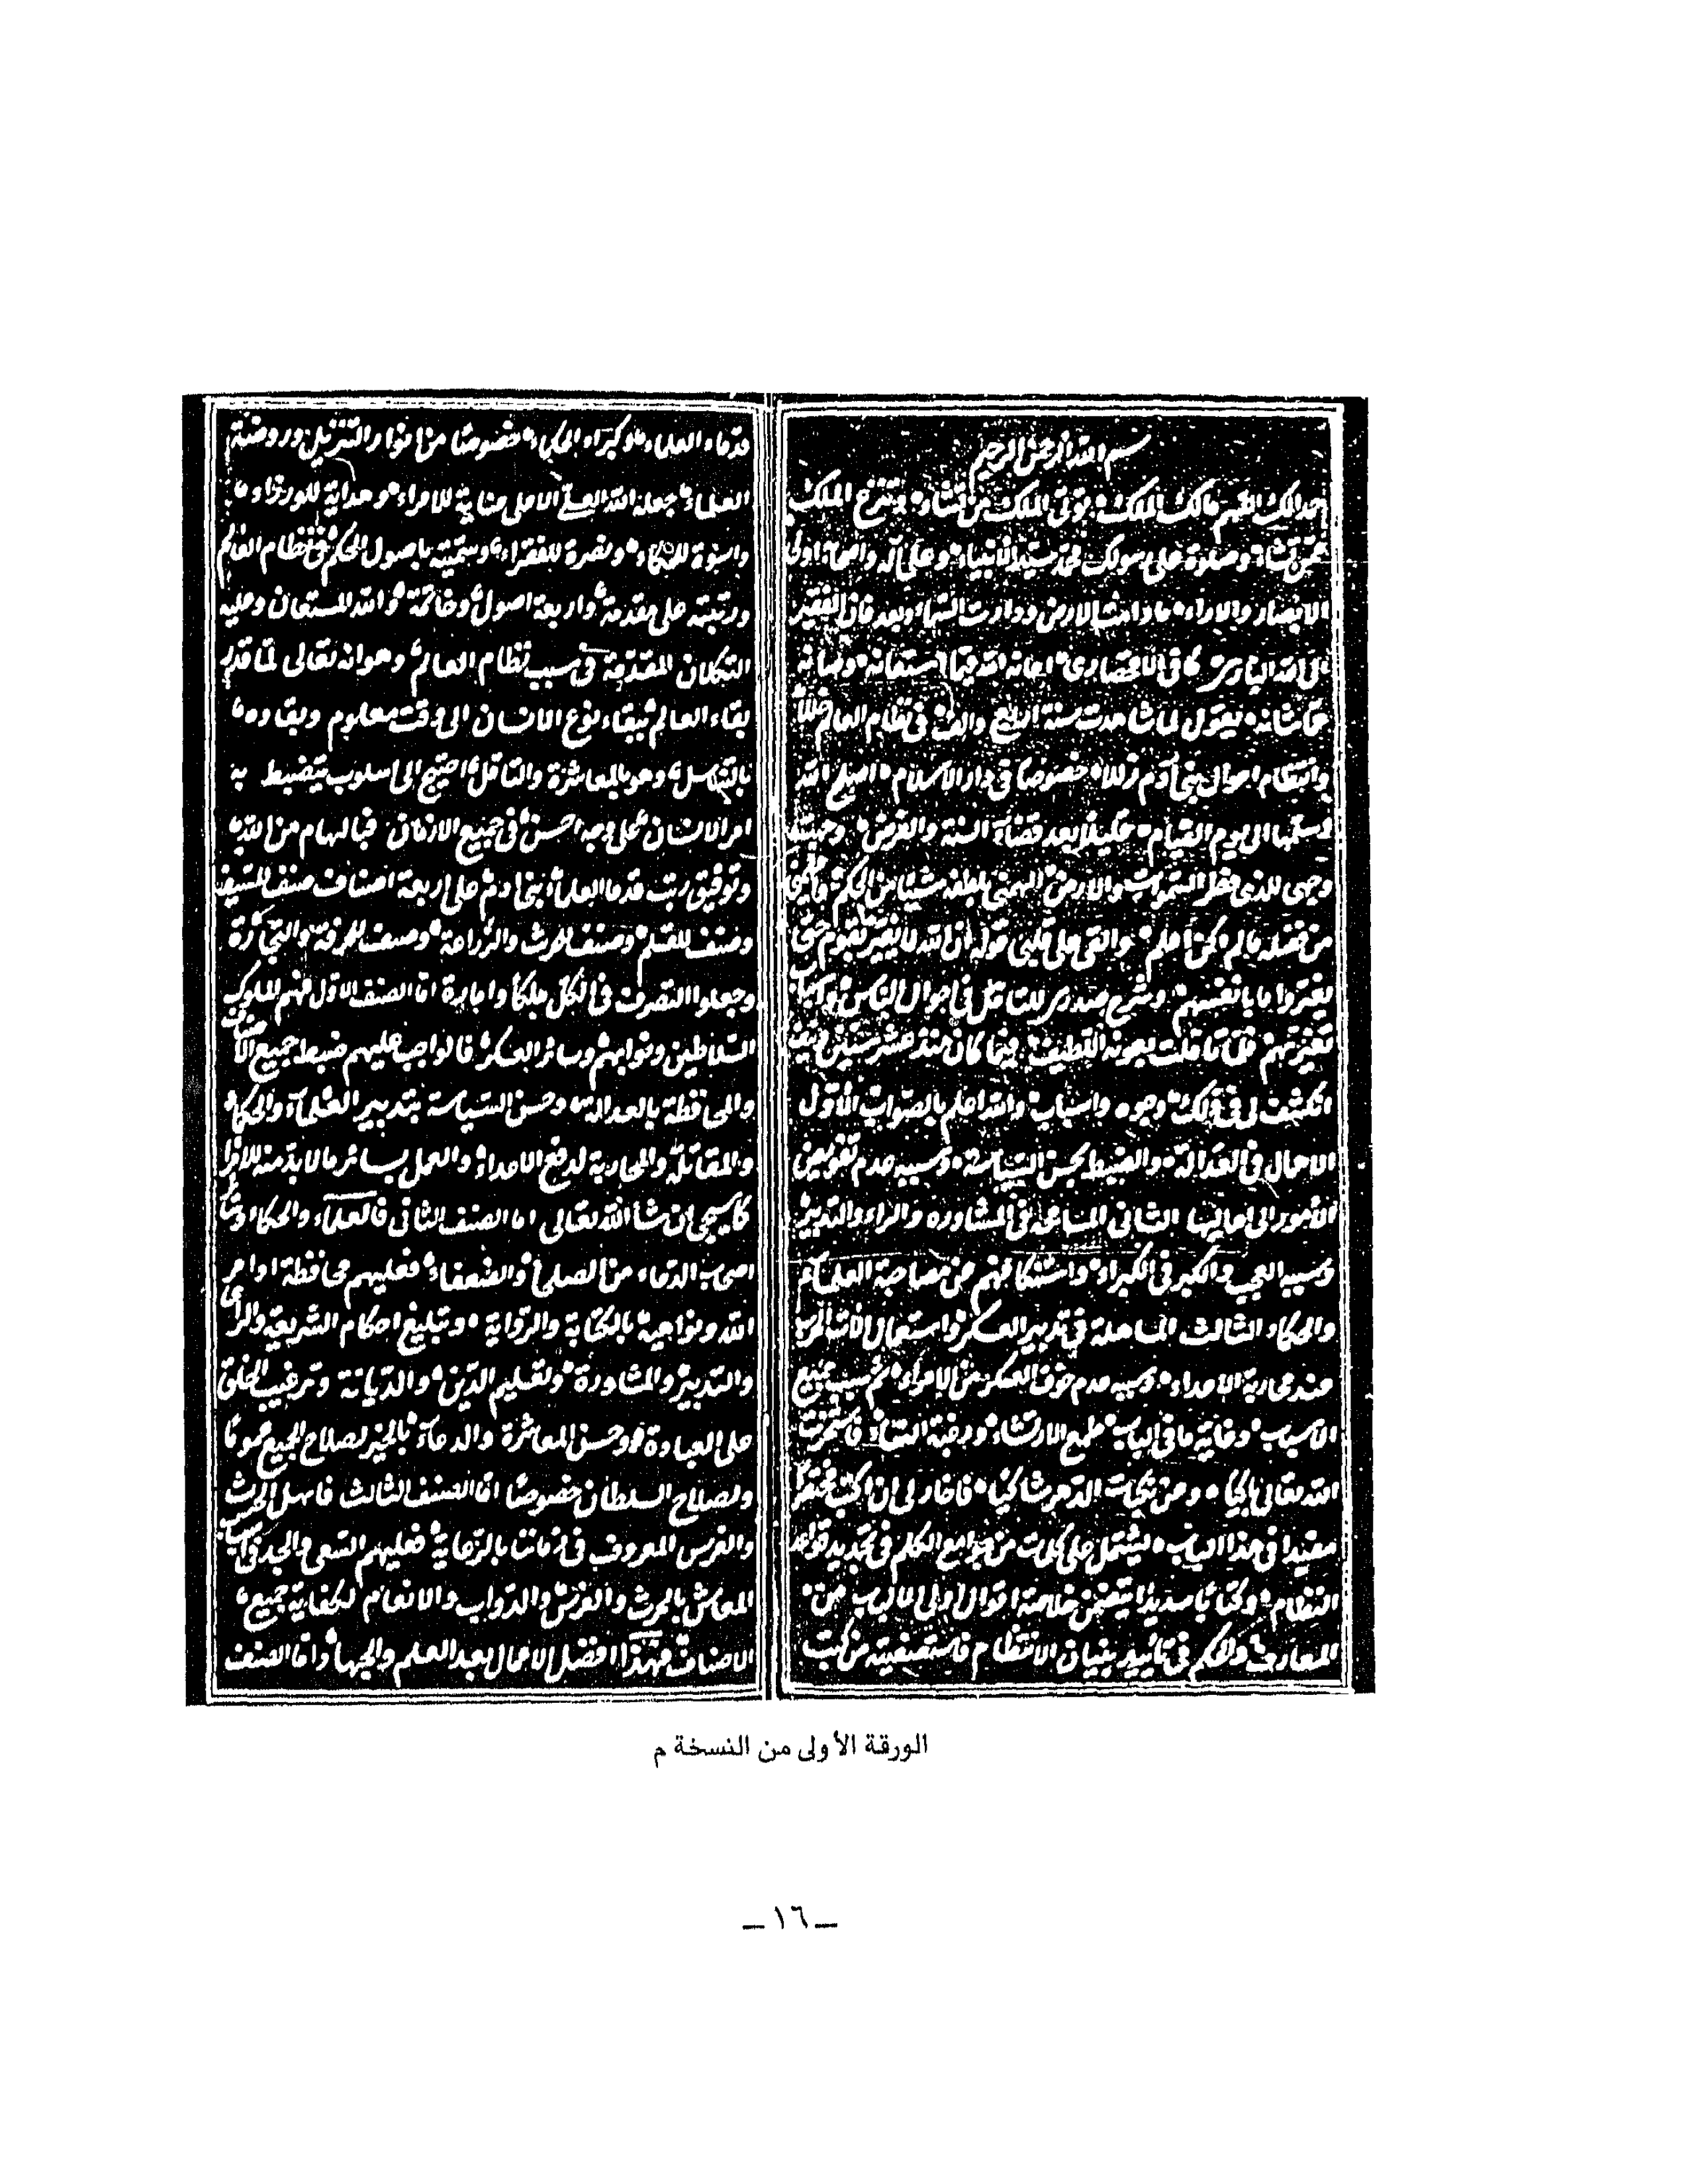 بسم الله الرحمن الرحيم
مالك الملك توتى الملك من تشاء وتنزع الملك
ممن تشاء وصلوة على رسولك محمد سيد الانبياء وعلى آله واصحابه اولى
الابصار والاراء ما دامت الارض ودارت السماء وبعد فان الفقير
الى الله البارى كافى الاقحصارى اعانه الله فيما استعانه وصانه
عما شانه يقول لما شاهدت سنة اربع والف فى نظام العالم خللا
وانتظام احوال بنى آدم زللا خصوصا فى دار الاسلام اصلح الله
وسلمها الى يوم القيام بعد قضاء السنة والفرض وجهت
وجهى للذى فطر السموات والارض الهمنى بلطفه شيئا من الحكم
من فضله ما لم اكن اعلم والقى على قلبى قوله ان الله لا يغير ما بقوم حتى
يغيروا ما بانفسهم وشرح صدرى للتأمل فى احوال الناس واسباب
تغيرتهم بعونه اللطيف فيما كان منذ عشر سنين
انكشف لى فى ذلك وجوه واسباب والله اعلم بالصواب الاول
الاهمال فى العدالة والضبط بحسن السياسة وسببه عدم تفويض
الامور الى اهاليها الثانى المسامحة فى المشاوره والراء والتدبير
وسببه العجب والكبر فى الكبراء واستنكافهم عن مصاحبة العلماء
والحكاء الثالث المساهلة فى تدبير العسكر واستعمال الات الحرب
عند محاربة الاعداء وسببه عدم خوف العسكر من الامراء ثم سبب جميع
الاسباب وغاية ما فى الباب طمع الارتشاء ورغبة النساء فاستخرت
الله تعالى باكيا وعن نكبات الدهر شاكيا فاخار لى ان اكتب مختصرا
مفيدا فى هذا الباب ليشتمل على كلمات من جوامع الكلم فى تجديد قواعد
النظام وكتابا سديدا يتضمن خلاصة اقوال اولى الالباب من
المعارف والحكم فى تأييد بنيان الانتظام فاستصفيته من كتب
قدماء العلماء وكبراء الحكاء خصوصا من انوار التنزيل وروضة
العلماء جعله الله العلى الاعلى عناية للامراء وهداية للوزراء
واسوة للحكاء ونصرة للفقراء وسميته باصول الحكم فى نظام العالم
ورتبته على مقدمة واربعة اصول وخاتمة والله المستعان وعليه
التكلان المقدمة فى سبب نظام العالم وهو انه تعالى لما قدر
بقاء العالم ببقاء نوع الانسان الى وقت معلوم وبقاوه
بالتناسل وهو بالمعاشرة والتأمل احتيج الى اسلوب ينضبط به
امر الانسان على وجه احسن فى جميع الازمان فبالهام من الله
وتوفيق رتب قدما العلماء بنى ادم على اربعة اصناف صنف للسيف
وصنف للقلم وصنف للحرث والزراعة وصنف للحرفة والتجارة
وجعلوا التصرف فى الكل ملكا وامارة اما الصنف الاول فهم الملوك
السلاطين ونوابهم وسائر العسكر فالواجب عليهم ضبط جميع الاصناف
والمحافظة بالعدالة وحسن السياسة بتدبير العلماء والحكاء
والمقاتلة والمحاربة لدفع الاعداء والعمل بسائر ما لا بد منه للامرا
كما سيجى ان شأ الله تعالى اما الصنف الثانى فالعلماء والحكاء وسائر
اصحاب الدعاء من الصلحا والضعفاء فعليهم محافظة اوامر
الله ونواهيه بالكتابة والرواية وتبليغ احكام الشريعة والراى
والتدبير والمشاورة ولتعليم الدين والديانة وترغيب الخلق
على العبادة وحسن المعاشرة والدعاء بالخير لصلاح الجميع عموما
ولصلاح السلطان خصوصا اما الصنف الثالث فاهل الحرث
والغرس المعروف فى زماننا بالرعاية فعليهم السعى والجد فى اسباب
المعاش بالحرث والغرس والدواب والانعام لكفاية جميع
الاصناف فهذا افضل الاعمال بعد العلم والجهاد واما الصنف
الورقة الأولى من النسخة م
ــ ١٦ ــ